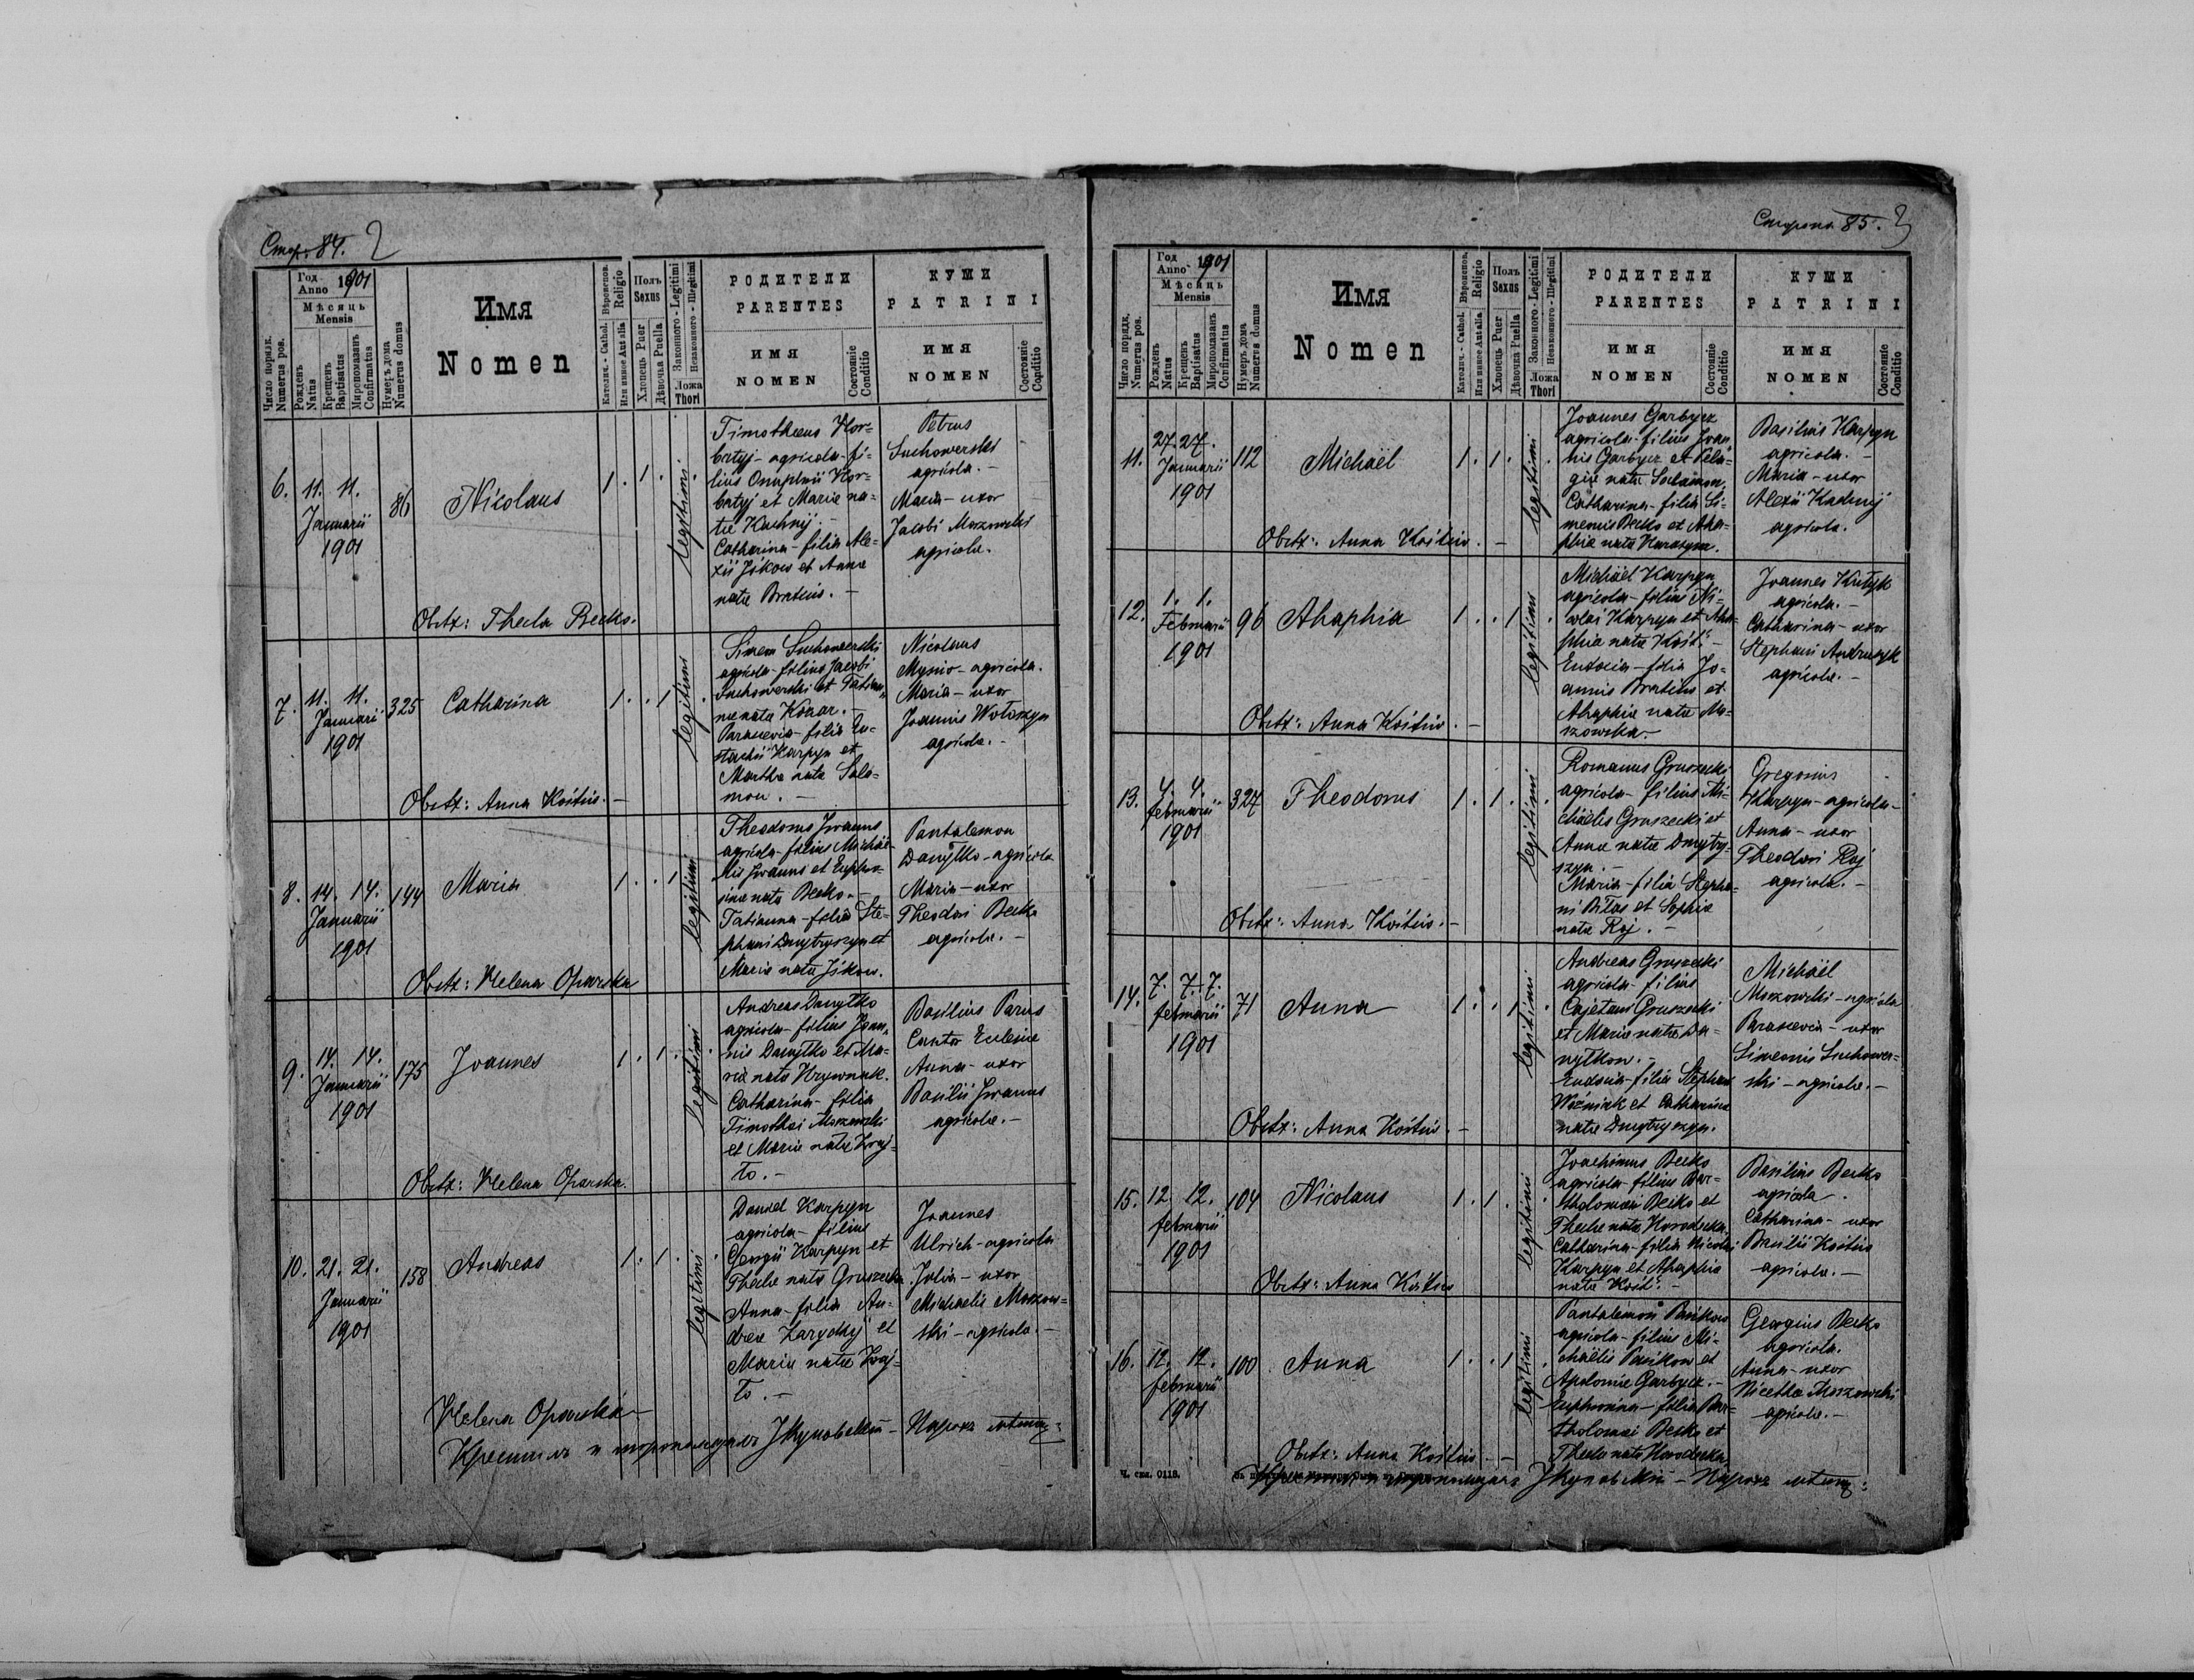 Стор. 84. 2
Число порядк. Numerus pos.
Год Anno 1901
Мѣсяць Mensis
Рожденъ Natus
Крещенъ Baptisatus
Миропомазанъ Confirmatus
Нумеръ дома Numerus domus
Имя
Nomen
Вѣроисповѣд. Religio
Католич. - Cathol.
Или инное Aut alia
Полъ Sexus
Хлопець Puer
Дѣвочка Puella
Законного - Legitimi
Незаконного - Illegitimi
Ложа Thori
РОДИТЕЛИ
PARENTES
ИМЯ
NOMEN
Состояніе Conditio
КУМИ
PATRINI
ИМЯ
NOMEN
Состояніе Conditio
6. 11. 11. Januarii 1901
86
Nicolaus
1. 1.
legitimi
Timotheus Hor=
batyj - agricola - fi=
lius Onuphrii Hor=
batyj et Mariae na=
tae Kachnij. -
Catharina - filia Ale=
xii Jikow et Annae
natae Bratius. -
Petrus
Suchowerski
agricola. -
Maria - uxor
Jacobi Moszowski
agricolae.
Obstx: Thecla Becko.
7. 11. 11. Januarii 1901
325
Catharina
1. . 1
legitimi
Simeon Suchowerski
agricola - filius Jacobi
Suchowerski et Tatian=
nae natae Kozar. -
Parascevia - filia Eu=
stachii Karpyn et
Marthae natae Salo=
mon. -
Nicolaus
Mynio - agricola.
Maria - uxor
Joannis Wołoszyn
agricolae. -
Obstx: Anna Kośtiw. -
8. 14. 14. Januarii 1901
144
Maria
1. . 1
legitimi
Theodorus Iwanus
agricola - filius Michaë=
lis Iwanus et Euphro=
sinae natae Becko. -
Tatianna - filia Ste=
phani Dmytryszyn et
Mariae natae Jikow.
Pantalemon
Danyłko - agricola
Maria - uxor
Theodori Becko
agricolae. -
Obstx: Helena Oparska
9. 14. 14. Januarii 1901
175
Joannes
1. 1.
legitimi
Andreas Danyłko
agricola - filius Joan=
nis Danyłko et Ma=
riae natae Hrywnak.
Catharina - filia
Timothei Moszowski
et Mariae natae Zwaj=
ło. -
Basilius Parus
Cantor Eclesiae
Anna - uxor
Basilii Iwanus
agricolae. -
Obstx: Helena Oparska.
10. 21. 21. Januarii 1901
158
Andreas
1. 1.
legitimi
Daniel Karpyn
agricola - filius
Georgii Karpyn et
Theclae natae Gruszecka.
Anna - filia An=
dreae Zarydkij et
Mariae natae Zwaj=
ło. -
Joannes
Ulrich - agricola
Julia - uxor
Michaelis Moszow=
ski - agricolae. -
Helena Oparska -
Крестилъ и миропомазалъ - Парохъ мѣстц:
Сторона 85. 3
Число порядк. Numerus pos.
Год Anno 1901
Мѣсяць Mensis
Рожденъ Natus
Крещенъ Baptisatus
Миропомазанъ Confirmatus
Нумеръ дома Numerus domus
Имя
Nomen
Вѣроисповѣд. Religio
Католич. - Cathol.
Или инное Aut alia
Полъ Sexus
Хлопець Puer
Дѣвочка Puella
Законного - Legitimi
Незаконного - Illegitimi
Ложа Thori
РОДИТЕЛИ
PARENTES
ИМЯ
NOMEN
Состояніе Conditio
КУМИ
PATRINI
ИМЯ
NOMEN
Состояніе Conditio
11. 27. 27. Januarii 1901
112
Michaël
1. 1.
legitimi
Joannes Garbycz
agricola - filius Joan=
nis Garbycz et Pela=
giae natae Salamon.
Catharina - filia Si=
meonis Becko et Aha=
phiae natae Harasym.
Basilius Karpyn
agricola. -
Maria - uxor
Alexii Kachnij
agricolae.
Obstx: Anna Kośtiw. -
12. 1. 1. Februarii 1901
96
Ahaphia
1. . 1
legitimi
Michaël Karpyn
agricola - filius Ni=
colai Karpyn et Aha=
phiae natae Kośt. -
Eudoxia - filia Jo=
annis Bratius et
Ahaphiae natae Mo=
szowska. -
Joannes Kutyk
agricola. -
Catharina - uxor
Stephani Andrusyk
agricolae. -
Obstx: Anna Kośtiw. -
13. 4. 4. februarii 1901
327
Theodorus
1. 1.
legitimi
Romanus Gruszecki
agricola - filius Mi=
chaëlis Gruszecki et
Annae natae Dmytry=
szyn. -
Maria - filia Stepha=
ni Biłas et Sophiae
natae Raj. -
Gregorius
Karpyn - agricola -
Anna - uxor
Theodori Raj
agricolae. -
Obstx: Anna Kośtiw. -
14. 7. 7. 7. februarii 1901
71
Anna
1. . 1
legitimi
Andreas Gruszecki
agricola - filius
Cajetani Gruszecki
et Mariae natae Da=
nyłkow. -
Eudoxia - filia Stephani
Woźniak et Catharinae
natae Dmytryszyn.
Michaël
Moszowski - agricola
Parascevia - uxor
Simeonis Suchower=
ski - agricolae. -
Obstx: Anna Kośtiw. -
15. 12. 12. februarii 1901
104
Nicolaus
1. 1.
legitimi
Joachimus Becko
agricola - filius Bar=
tholomaei Becko et
Theclae natae Horodecka.
Catharina - filia Nicolai
Karpyn et Ahaphiae
natae Kośt. -
Basilius Becko
agricola.
Catharina - uxor
Basilii Kośtiw
agricolae. -
Obstx: Anna Kośtiw
16. 12. 12. februarii 1901
100
Anna
1. . 1
legitimi
Pantalemon Pańkow
agricola - filius Mi=
chaëlis Pańkow et
Apoloniae Garbycz. -
Euphrosina - filia Bar=
tholomaei Becko et
Theclae natae Horodecka
Georgius Becko
agricola.
Anna - uxor
Nicetha Moszowski
agricolae. -
Obstx: Anna Kośtiw. -
Ч. скл. 0118.
Крестилъ и миропомазалъ - Парохъ мѣстц: